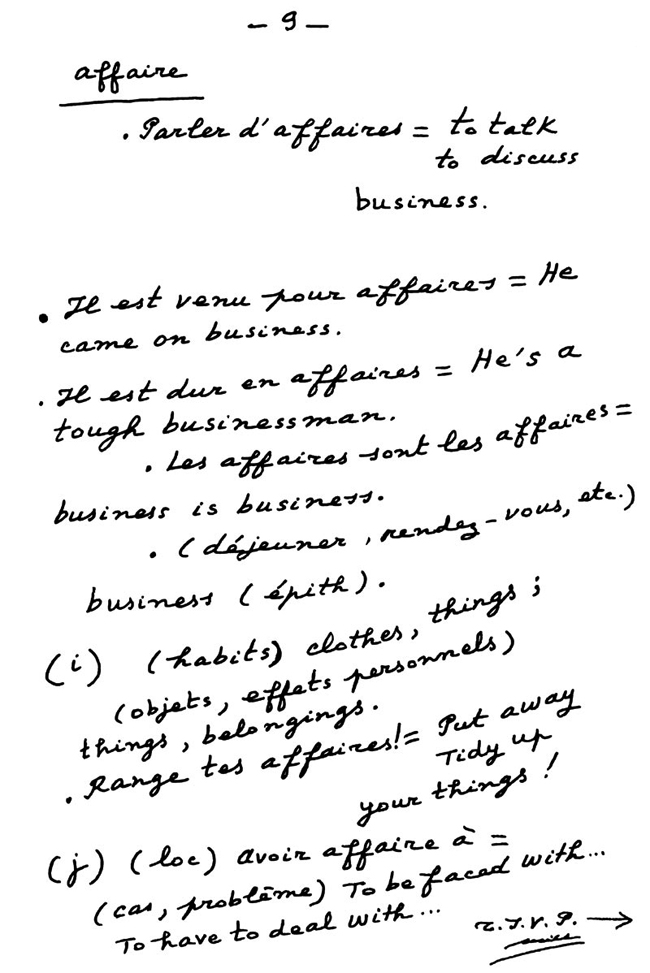 - 9 -
affaire
. Parler d'affaires = to talk
to discuss
business.
. Il est venu pour affaires = He
came on business.
. Il est dur en affaires = He's a
tough businessman.
. Les affaires sont les affaires =
business is business.
. (déjeuner, rendez-vous, etc.)
business (épith).
(i) (habits) clothes, things ;
(objets, effets personnels)
things, belongings.
. Range tes affaires! = Put away
Tidy up
your things !
(j) (loc) avoir affaire à =
(cas, problème) To be faced with...
To have to deal with...
T.S.V.P. →